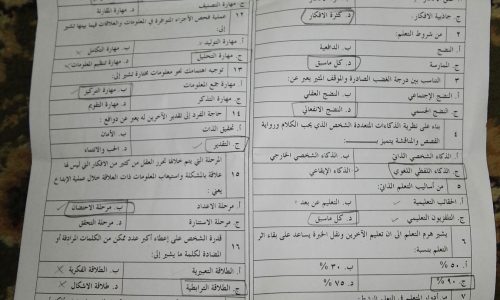 ج. جاذبية الافكار:
د. كثرة الافكار
٢
من شروط التعلم:
أ. النضج
ب. الدافعية
ج. الممارسة
د. كل ماسبق
٣
التناسب بين درجة الغضب الصادرة والموقف المثير يعبر عن:
أ. النضج الإجتماعي
ب. النضج العقلي
ج. النضج الجسمي
د. النضج الانفعالي
٤
بناء على نظرية الذكاءات المتعددة الشخص الذي يحب الكلام ورواية
القصص والمناقشة يتميز بـ
أ. الذكاء الشخصي الذاتي
ب. الذكاء الشخصي الخارجي
ج. الذكاء اللفظي اللغوي
د. الذكاء الإيقاعي
٥
من أساليب التعلم الذاتي:
أ. الحقائب التعليمية
ب. التعليم عن بعد
ج. التلفزيون التعليمي
د. كل ماسبق
٦
يشير هرم التعلم الى ان تعليم الآخرين ونقل الخبرة يساعد على بقاء اثر
التعلم بنسبة:
أ. ٥٠ %
ب. ٣٠ %
ج. ٩٠ %
د. ٧٥ %
٧
ج. مهارة التصنيف
د. مهارة المقارنة
١٢
عملية فحص الأجزاء المتوافرة في المعلومات والعلاقات فيما بينها تشير
إلى:
أ. مهارة التوليد
ب. مهارة التكامل
ج. مهارة التحليل
د. مهارة تنظيم المعلومات
١٣
توجيه اهتمامك نحو معلومات مختارة تشير إلى:
أ. مهارة جمع المعلومات
ب. مهارة التركيز
ج. مهارة التذكر
د. مهارة التقويم
١٤
حاجة الفرد إلى تقدير الآخرين له يعبر عن دوافع:
أ. تحقيق الذات
ب. الأمان
ج. التقدير
د. الحب والانتماء
١٥
المرحلة التي يتم خلالها تحرر العقل من كثير من الافكار التي ليس لها
علاقة بالمشكلة واستيعاب المعلومات ذات العلاقة خلال عملية الإبداع
يعني:
أ. مرحلة الاعداد
ب. مرحلة الاحتضان
ج. مرحلة الاستنارة
د. مرحلة التحقق
١٦
قدرة الشخص على إعطاء أكبر عدد ممكن من الكلمات المرادفة أو
المضادة لكلمة ما يشير إلى:
أ. الطلاقة التعبيرية
ب. الطلاقة الفكرية
ج. الطلاقة الترابطية
د. طلاقة الاشكال